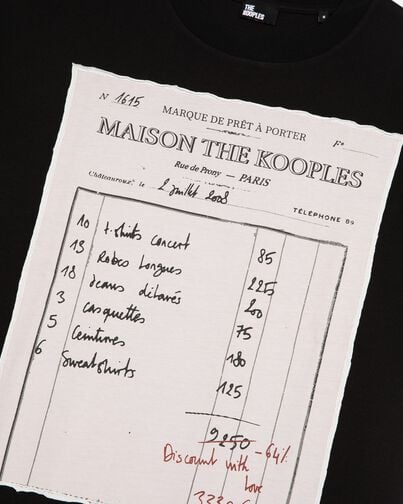 THE
KOOPLES
N 1615
MARQUE DE PRÊT À PORTER
Fo
MAISON THE KOOPLES
Rue de Prony — PARIS
Châteauroux, le 2 juillet 2008
TÉLÉPHONE 89
10 t-shirts concert 85
13 Robes longues 225
18 Jeans délavés 200
3 casquettes 75
5 Ceintures 180
6 Sweatshirts 125
9250 -64%
Discount with
love